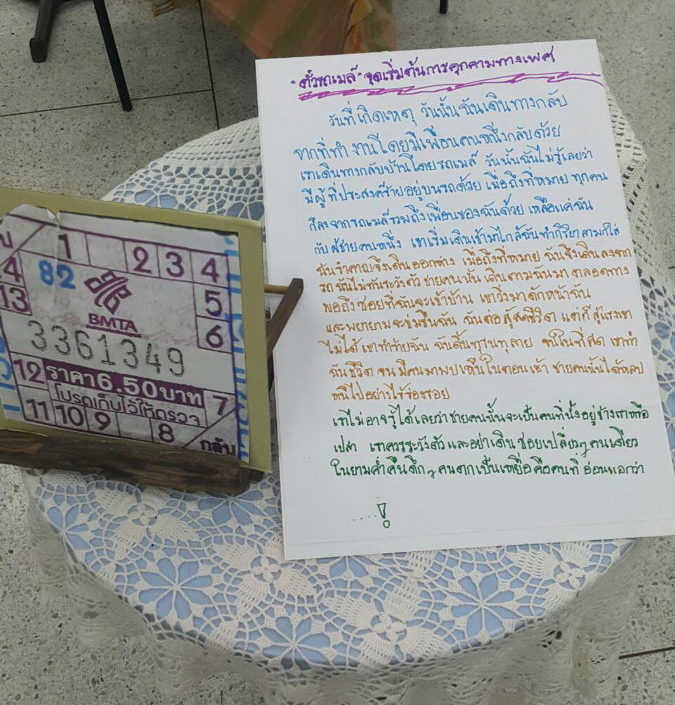 "ตั๋วรถเมล์" จุดเริ่มต้นการคุกคามทางเพศ
วันที่เกิดเหตุ วันนั้นฉันเดินทางกลับ
จากที่ทำงานโดยมีเพื่อนคนหนึ่งกลับด้วย
เราเดินทางกลับบ้านโดยรถเมล์ วันนั้นฉันไม่รู้เลยว่า
มีผู้ที่ประสงค์ร้ายอยู่บนรถด้วย เมื่อถึงที่หมาย ทุกคน
ก็ลงจากรถเมล์รวมถึงเพื่อนของฉันด้วย เหลือแค่ฉัน
กับผู้ชายคนหนึ่ง เขาเริ่มเดินเข้ามาใกล้ฉันทำกิริยาลามกใส่
ฉันรำคาญจึงเดินออกห่าง เมื่อถึงที่หมาย ฉันจึงเดินลงจาก
รถ ฉันไม่ทันระวังตัว ชายคนนั้น เดินตามฉันมา ตลอดทาง
พอถึงซอยที่ฉันจะเข้าบ้าน เขาวิ่งมาดักหน้าฉัน
และพยายามจะข่มขืนฉัน ฉันต่อสู้สุดชีวิต แต่ก็สู้แรงเขา
ไม่ได้ เขาทำร้ายฉัน ฉันดิ้นทุรนทุลาย จนในที่สุด เขาทำ
ฉันเสียชีวิต จนมีคนมาพบศพในตอนเช้า ชายคนนั้นได้หลบ
หนีไปอย่างไร้ร่องรอย
เราไม่อาจรู้ได้เลยว่าชายคนนั้นจะเป็นคนที่นั่งอยู่ข้างเราหรือ
เปล่า เราควรระวังตัวและอย่าเดินซอยเปลี่ยวๆ คนเดียว
ในยามค่ำคืนดึกๆ คนตกเป็นเหยื่อคือคนที่อ่อนแอกว่า
.....!
1 2 3 4
4 82 5
13 BMTA 6
3361349
12 ราคา 6.50 บาท 7
โปรดเก็บไว้ให้ตรวจ
11 10 9 8 กลับ